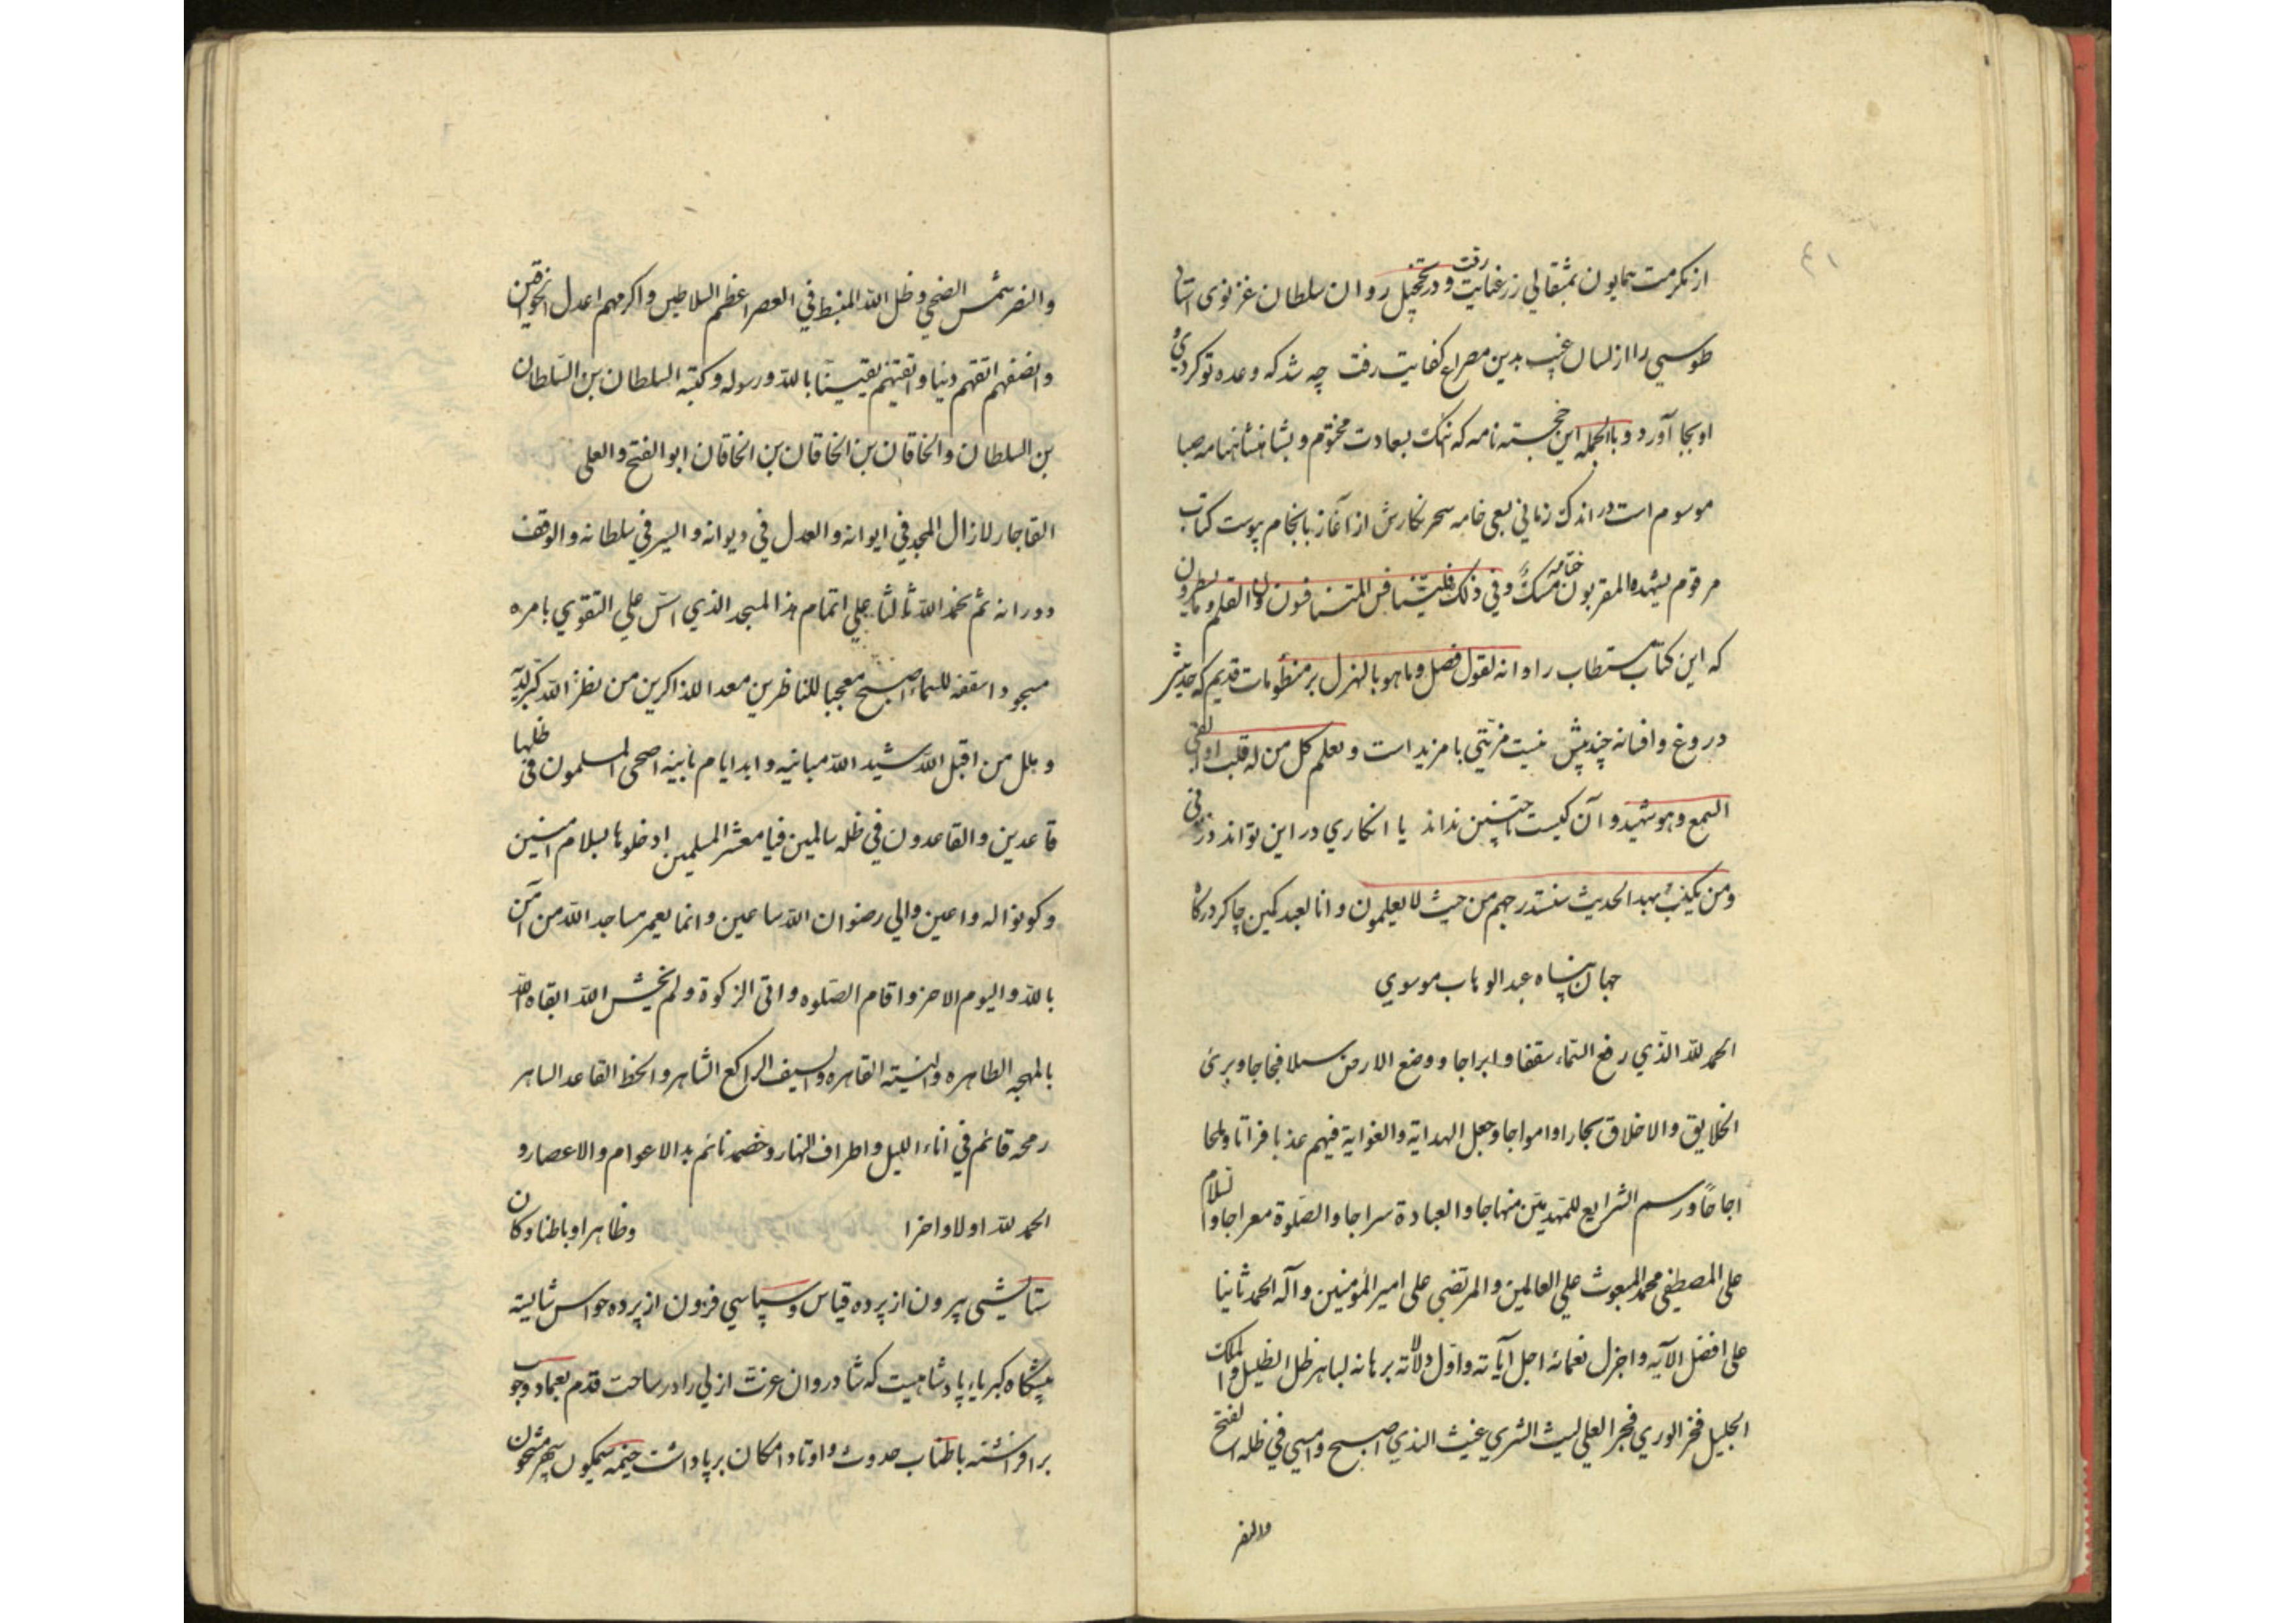 ٤١
از مکرمت همایون بمثقالی زر عنایت رفت و در تخجیل روان سلطان غزنوی استاد
طوسی را از لسان غیب بدین مصراع کفایت رفت چه شد که وعده تو کردی
او بجا آورد و بالجمله این خجسته نامه که نهک بسعادت مختوم و بشاهنشاهنامه صبا
موسوم است در اندک زمانی بسعی خامه سحر نکارش از آغاز بانجام پیوست کتاب
مرقوم یشهده المقربون ختامه مسک وفی ذلک فلیتنافس المتنافسون ن والقلم وما یسطرون
که این کتاب مستطاب را وانه لقول فصل وما هو بالهزل بر منظومات قدیم که حدیثش
دروغ و افسانه چند پیش نیست مزیتی با مزید است و یعلم کل من له قلب او القی
السمع وهو شهید و آن کیست تا چنین نداند یا انکاری در این تواند ذرنی
ومن یکذب بهذا الحدیث سنستدرجهم من حیث لا یعلمون وانا العبد کمین چاکر درکاه
جهان پناه عبدالوهاب موسوی
الحمد لله الذی رفع السماء سقفا وابراجا ووضع الارض سبلا فجاجا وبرئ
الخلایق والاخلاق بحارا وامواجا وجعل الهدایة والغوایة فیهم عذبا فراتا وملحا
اجاجا ورسم الشرایع للمتهدین منهاجا والعبادة سراجا والصلوة معراجا والسلام
علی المصطفی محمد المبعوث علی العالمین والمرتضی علی امیر المؤمنین وآله الحمد ثانیا
علی افضل الآیه واجزل نعمائه اجل آیاته واول دلالاته برهانه الباهر ظل الظلیل والملک
الجلیل فخر الوری فجر العلی لیث الشری غیث الذی اصبح وامسی فی ظله الفتح
والنصر
والنصر شمس الضحی وظل الله المنبسط فی العصر اعظم السلاطین واکرمهم اعدل الخواقین
وانصفهم اتقهم دنیا واتقیهم یقینا بالله ورسوله وکتبه السلطان بن السلطان
بن السلطان والخاقان بن الخاقان بن الخاقان ابو الفتح والعلی
القاجار لا زال المجد فی ایوانه والعدل فی دیوانه والسیر فی سلطانه والوقف
دورانه ثم نحمد الله ثالثا علی اتمام هذا المسجد الذی اسس علی التقوی بامره
مسجود اسقفه للسماء اصبح معجبا للناظرین معدا للذاکرین من نظر الله کبر لله
وهلل من اقبل الله شید الله مبانیه وابد ایام بانیه اضحی المسلمون فی ظلها
قاعدین والقاعدون فی ظله سالمین فیا معشر المسلمین ادخلوها بسلام آمنین
وکونوا له داعین والی رضوان الله ساعین وانما یعمر مساجد الله من آمن
بالله والیوم الاخر واقام الصلوه واتی الزکوة ولم یخش الله ابقاه الله
بالمهجه الطاهره والنیته القاهره والسیف الراکع الشاهر والخط القاعد الساهر
رمحه قائم فی اناء اللیل واطراف النهار وخصمه نائم بد الاعوام والاعصار و
الحمد لله اولا واخرا وظاهرا وباطنا وکان
ستایشی بیرون از پرده قیاس و سپاسی فزون از پرده حواس شایسته
پیشکاه کبریاء پادشاهیست که شادروان عزت ازلی را در ساحت قدم بعماد وجو
برافراشته باطناب حدوث و اوتاد امکان برپا داشت خیمه نیلکون سپهر مشحون